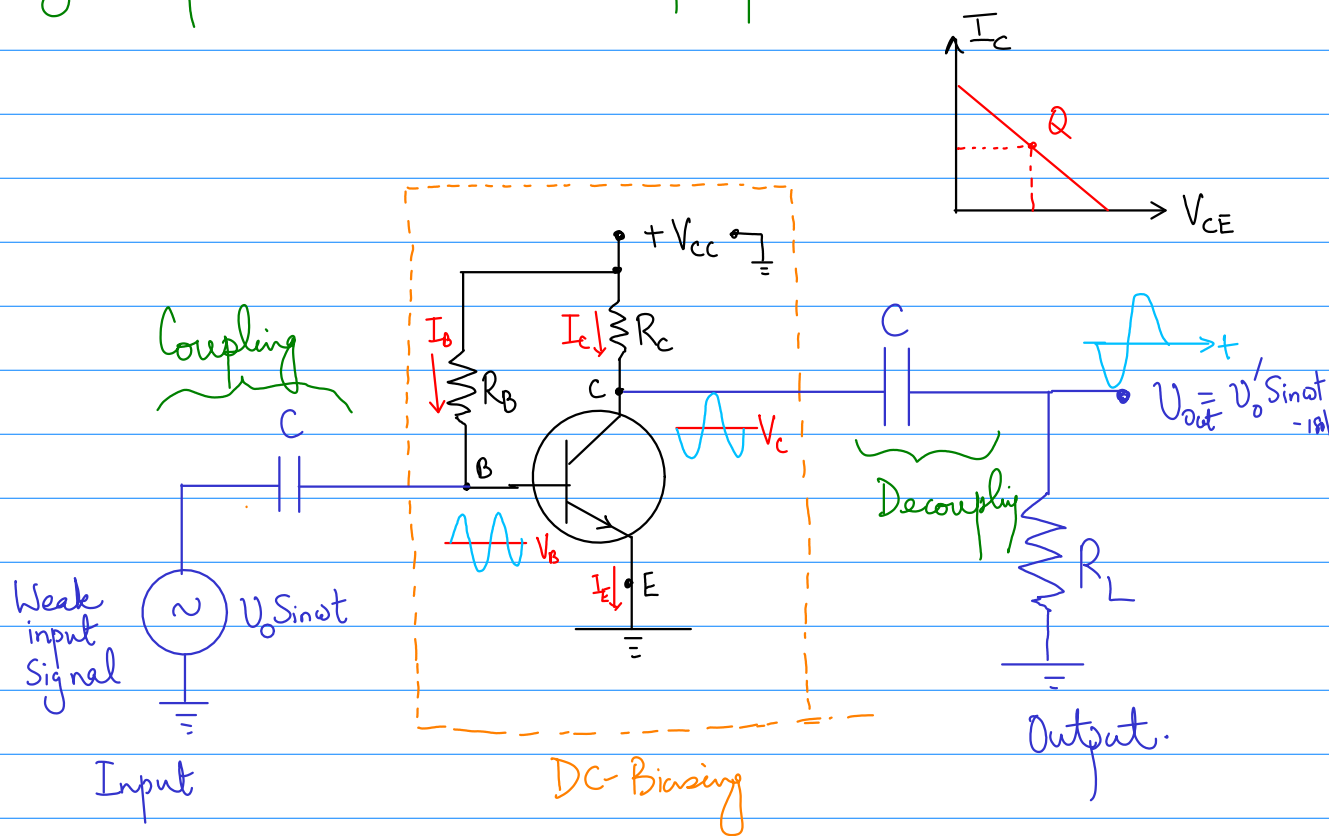 I_C
Q
V_CE
+V_CC
Coupling
I_B
I_C
R_C
C
R_B
C
C
V_C
V_out = V_0' Sinωt
B
Decoupling
V_B
I_E
E
R_L
Weak
input
Signal
V_0 Sinωt
t
Input
DC-Biasing
Output.